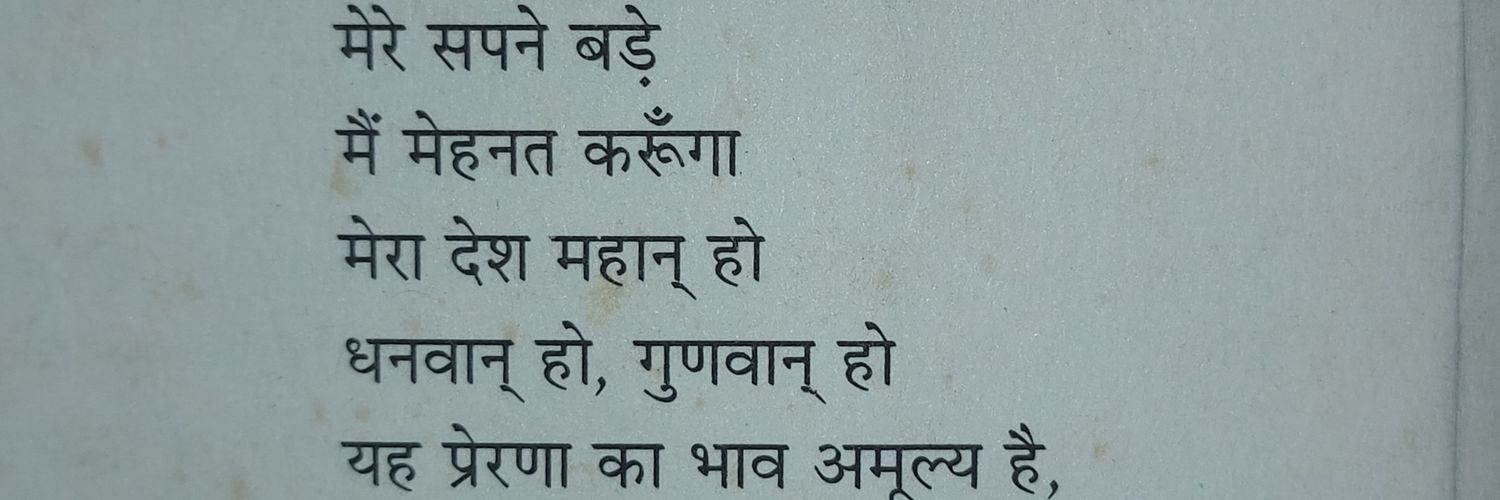 मेरे सपने बड़े
मैं मेहनत करूँगा
मेरा देश महान् हो
धनवान् हो, गुणवान् हो
यह प्रेरणा का भाव अमूल्य है,